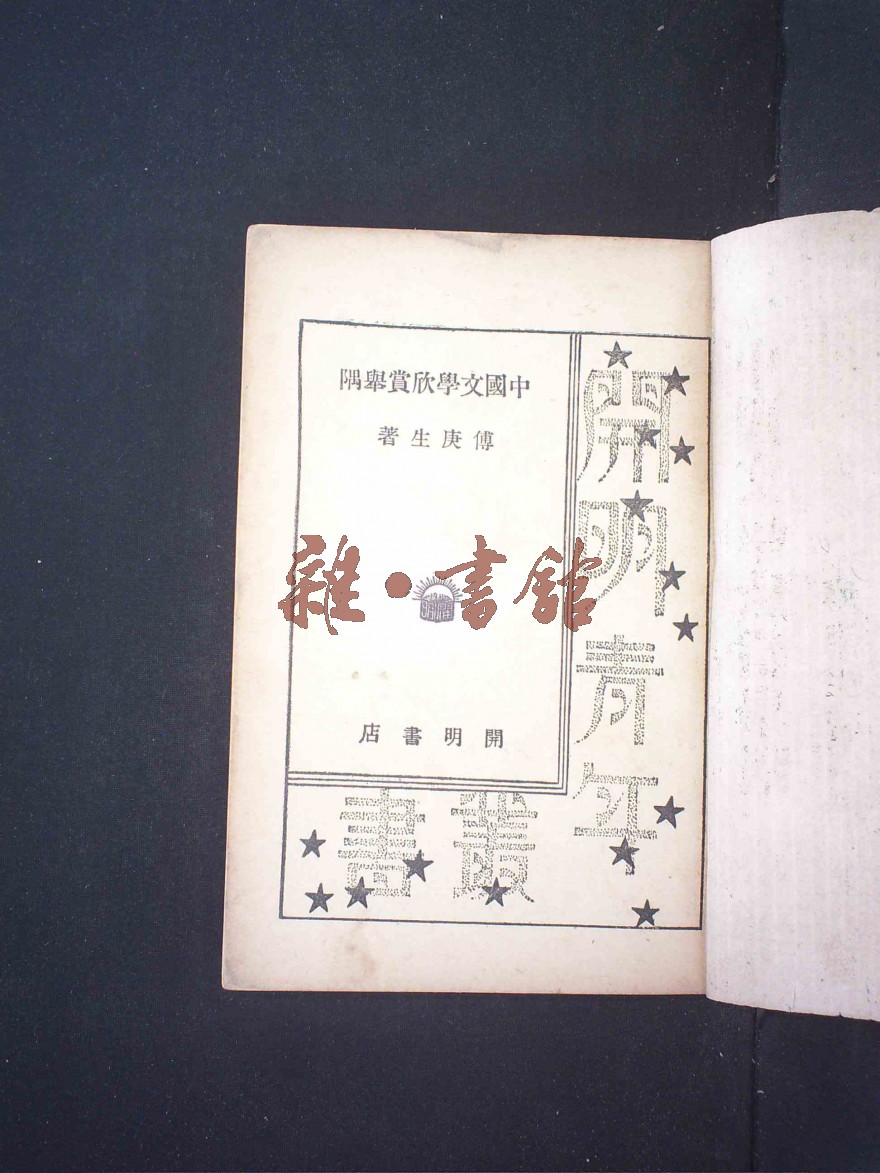 中國文學欣賞舉隅
傅庚生著
雜·書館
開明
開明書店
開明青年
叢書